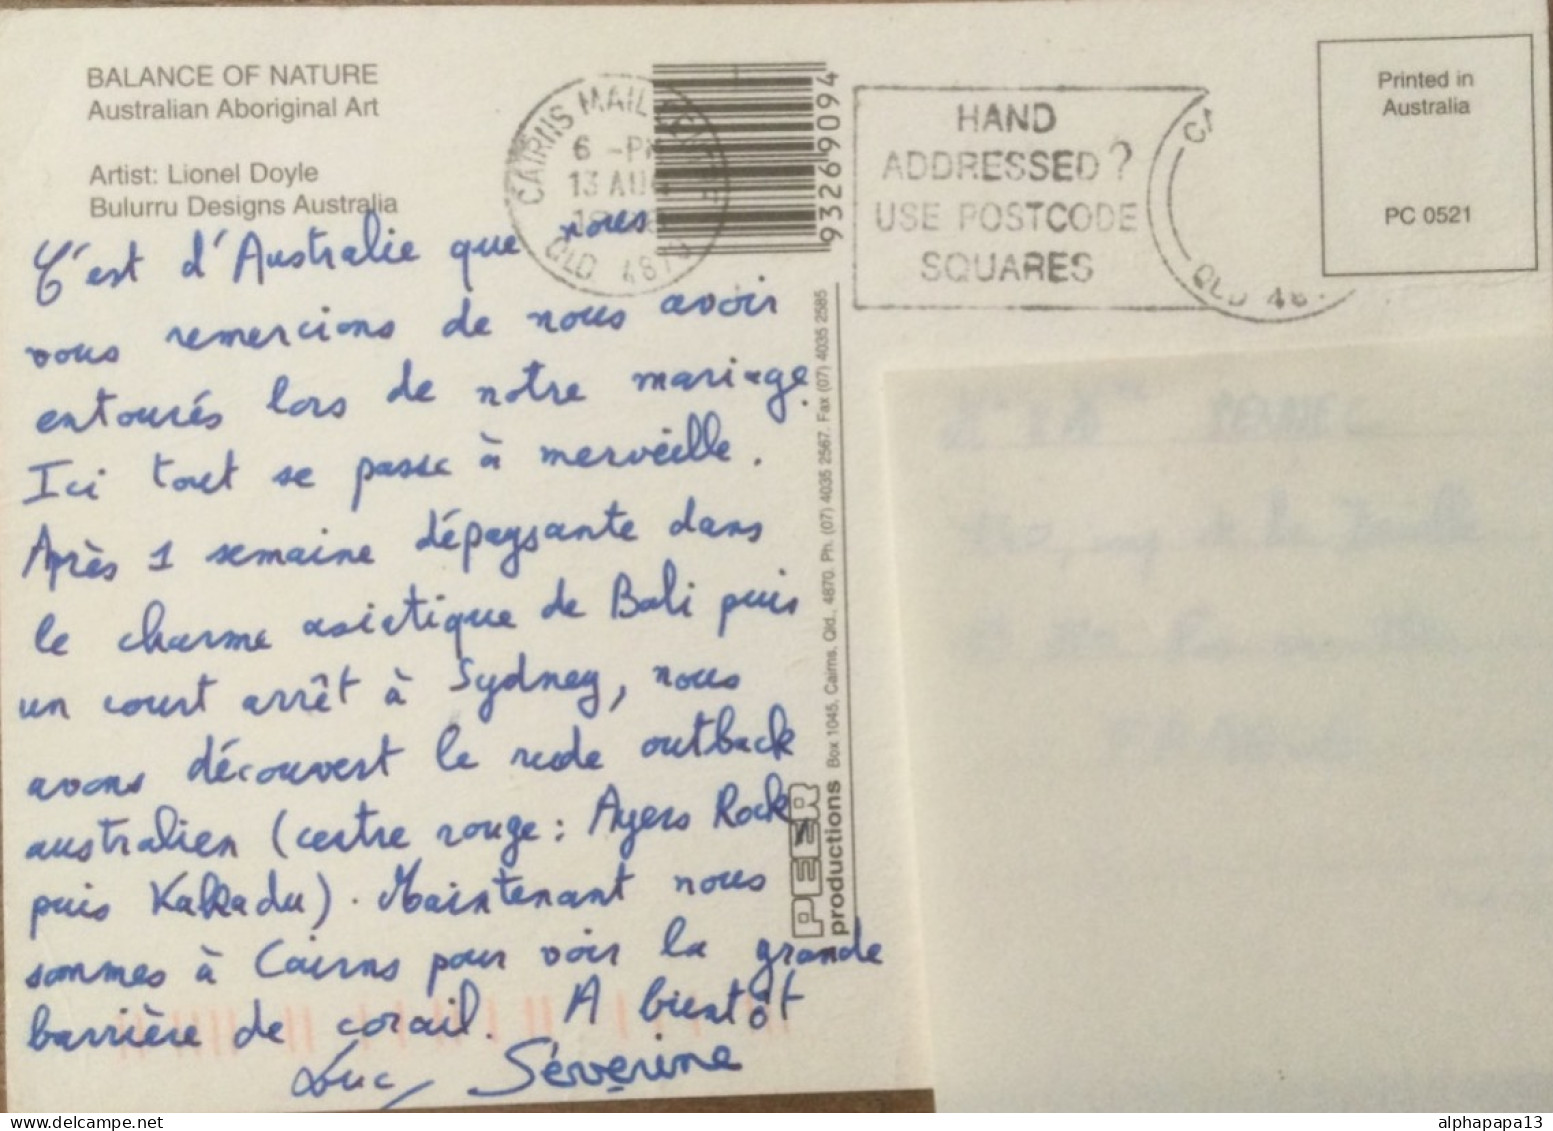 BALANCE OF NATURE
Australian Aboriginal Art
Artist: Lionel Doyle
Bulurru Designs Australia
CAIRNS MAIL CENTRE
6 -PM
13 AUG
QLD 4870
9326909 4
HAND
ADDRESSED?
USE POSTCODE
SQUARES
QLD 48
Printed in
Australia
PC 0521
C'est d'Australie que nous
vous remercions de nous avoir
entourés lors de notre mariage.
Ici tout se passe à merveille.
Après 1 semaine dépaysante dans
le charme asiatique de Bali puis
un court arrêt à Sydney, nous
avons découvert le rude outback
australien (centre rouge : Ayers Rock
puis Kakadu). Maintenant nous
sommes à Cairns pour voir la grande
barrière de corail. A bientôt
Luc, Séverine
PEER
productions Box 1045, Cairns, Qld., 4870. Ph. (07) 4035 2567. Fax (07) 4035 2585
FRANCE
alphapapa13